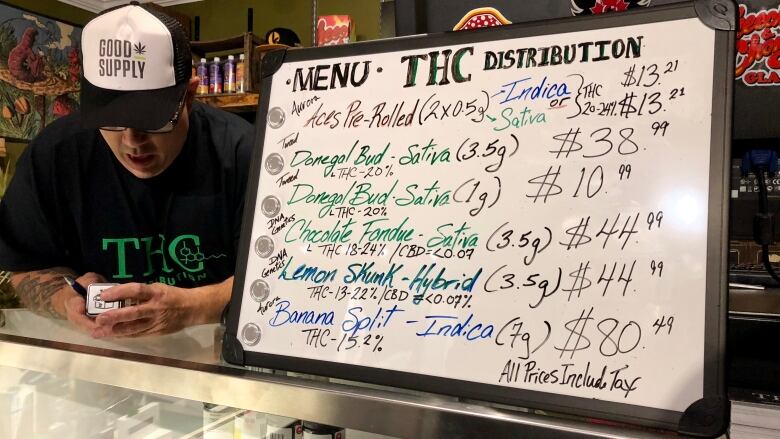 GOOD
SUPPLY
THC
· MENU · THC DISTRIBUTION
Aurora
Aces Pre-Rolled (2x0.5g) - Indica or Sativa } THC 20-24% $13.21
$13.21
Tweed
Donegal Bud - Sativa (3.5g) $38.99
THC-20%
Tweed
Donegal Bud - Sativa (1g) $10.99
THC-20%
DNA Genetics
Chocolate Fondue - Sativa (3.5g) $44.99
THC 18-24% / CBD <0.07
DNA Genetics
Lemon Skunk - Hybrid (3.5g) $44.99
THC-13-22% / CBD <0.07%
Aurora
Banana Split - Indica (7g) $80.49
THC-15.2%
All Prices Include Tax